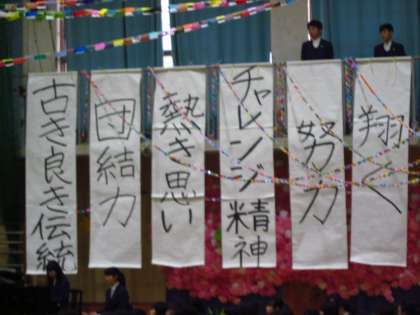 翔く
努力
チャレンジ精神
熱き思い
団結力
古き良き伝統